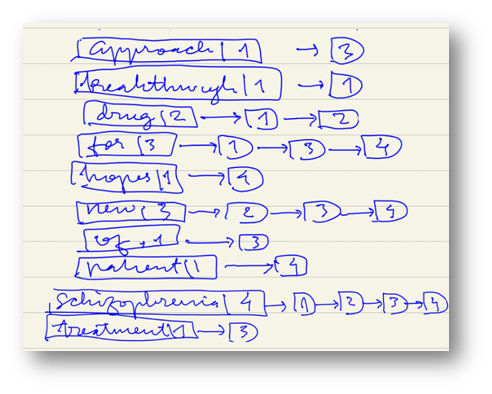 approach | 1 → 3
breakthrough | 1 → 1
drug | 2 → 1 → 2
for | 3 → 1 → 3 → 4
hopes | 1 → 4
new | 3 → 2 → 3 → 4
of | 1 → 3
patient | 1 → 4
schizophrenia | 4 → 1 → 2 → 3 → 4
treatment | 1 → 3